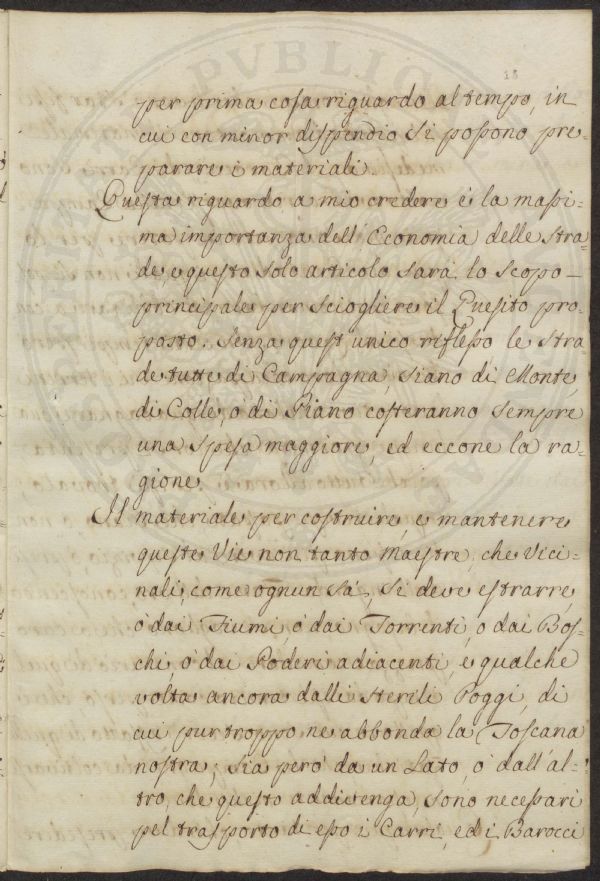 18
per prima cosa riguardo al tempo, in
cui con minor dispendio si possono pre-
parare i materiali.
Questa riguardo a mio credere è la massi-
ma importanza dell'Economia delle Stra-
de, e questo solo articolo sarà lo scopo
principale per sciogliere il Quesito pro-
posto. Senza quest'unico riflesso le stra
de tutte di Campagna, siano di Monte,
di Colle, o di Piano costeranno sempre
una spesa maggiore, ed eccone la ra-
gione.
Il materiale per costruire, e mantenere
queste Vie non tanto maestre, che Vici-
nali, come ognun sà, si deve estrarre,
ò dai Fiumi ò dai Torrenti, o dai Bos-
chi, ò dai Poderi adiacenti, e qualche
volta ancora dalli sterili Poggi, di
cui pur troppo ne abbonda la Toscana
nostra; sia però da un Lato, ò dall'al-
tro, che questo addivenga, sono necessari
pel trasporto di esso i Carri, ed i Barocci